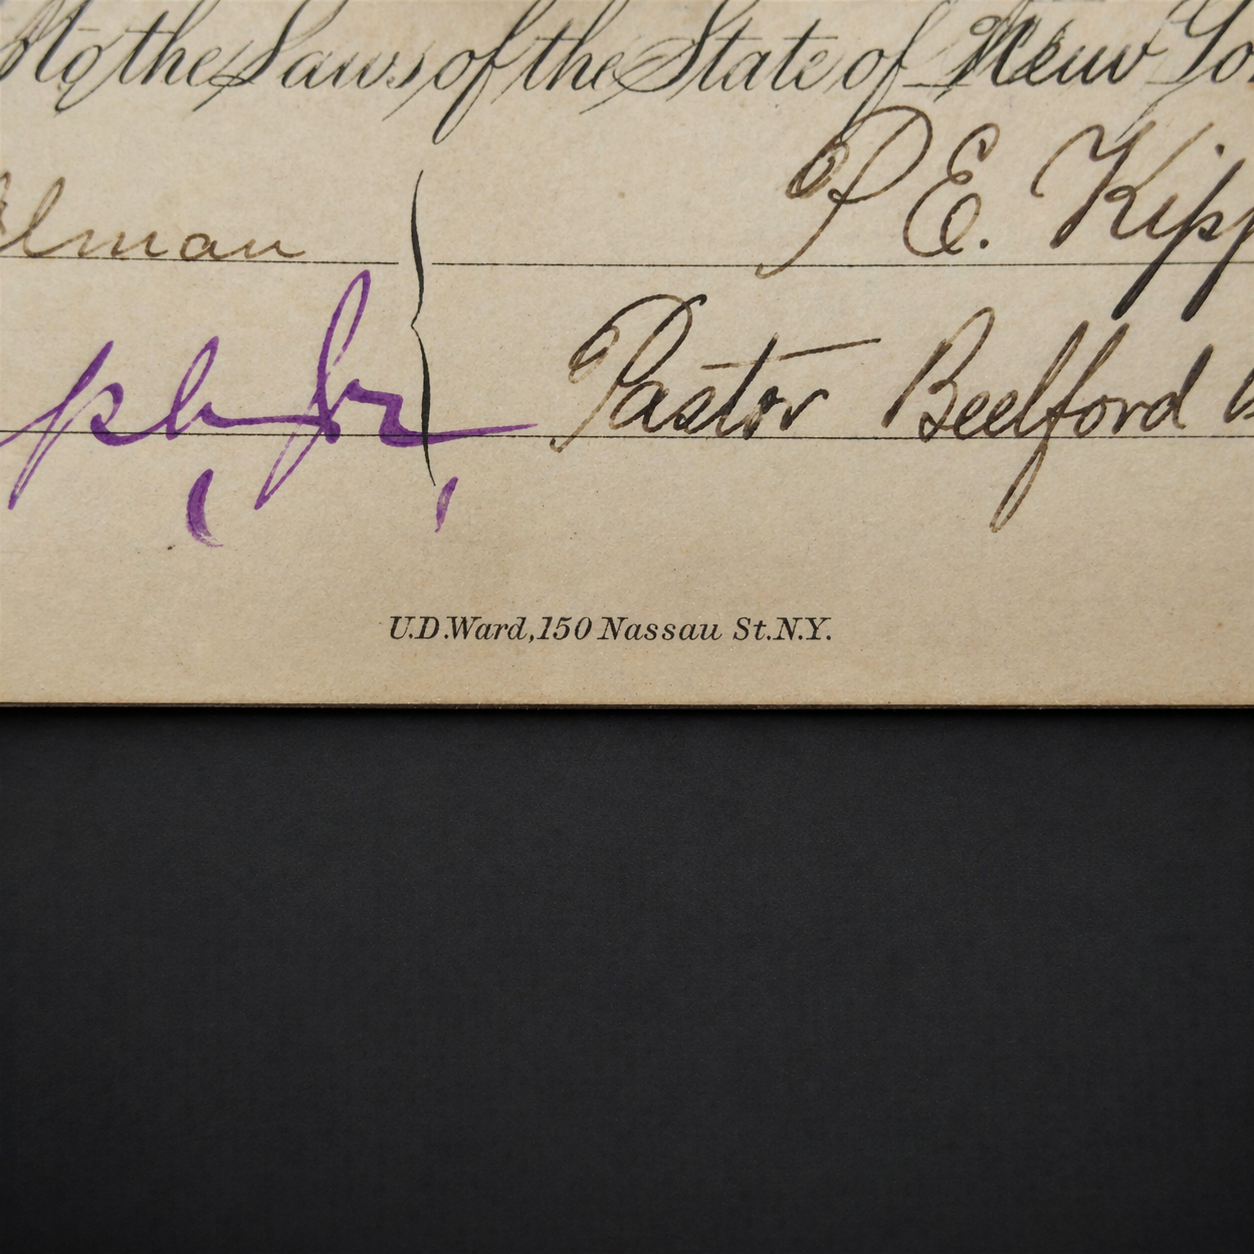 to the Laws of the State of New Yo
lman P. E. Kipp
ph Jr Pastor Beelford
U.D.Ward,150 Nassau St.N.Y.